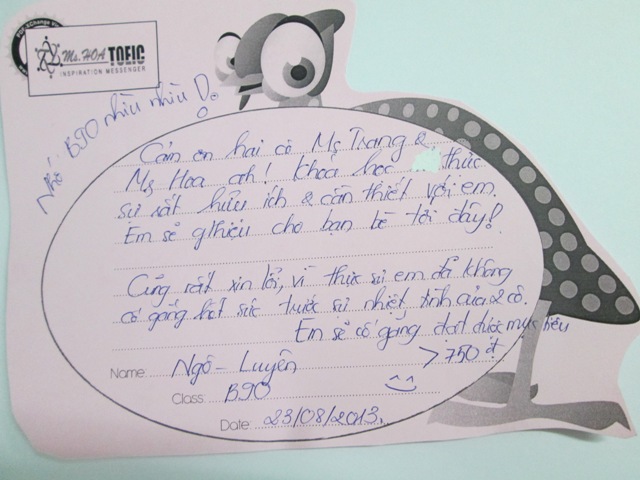 PDF-XChange
Ms. HOA TOEIC
INSPIRATION MESSENGER
Nhớ B90 nhìu nhìu !
Cảm ơn hai cô Ms Trang &
Ms Hoa ah! Khoá học thực
sự rất hữu ích & cần thiết với em.
Em sẽ gthiệu cho bạn bè tới đây!
Cũng rất xin lỗi, vì thực sự em đã không
cố gắng hết sức trước sự nhiệt tình của 2 cô.
Em sẽ cố gắng đạt được mục tiêu
> 750 đ
Name: Ngô - Luyên
Class: B90
Date: 23/08/2013.